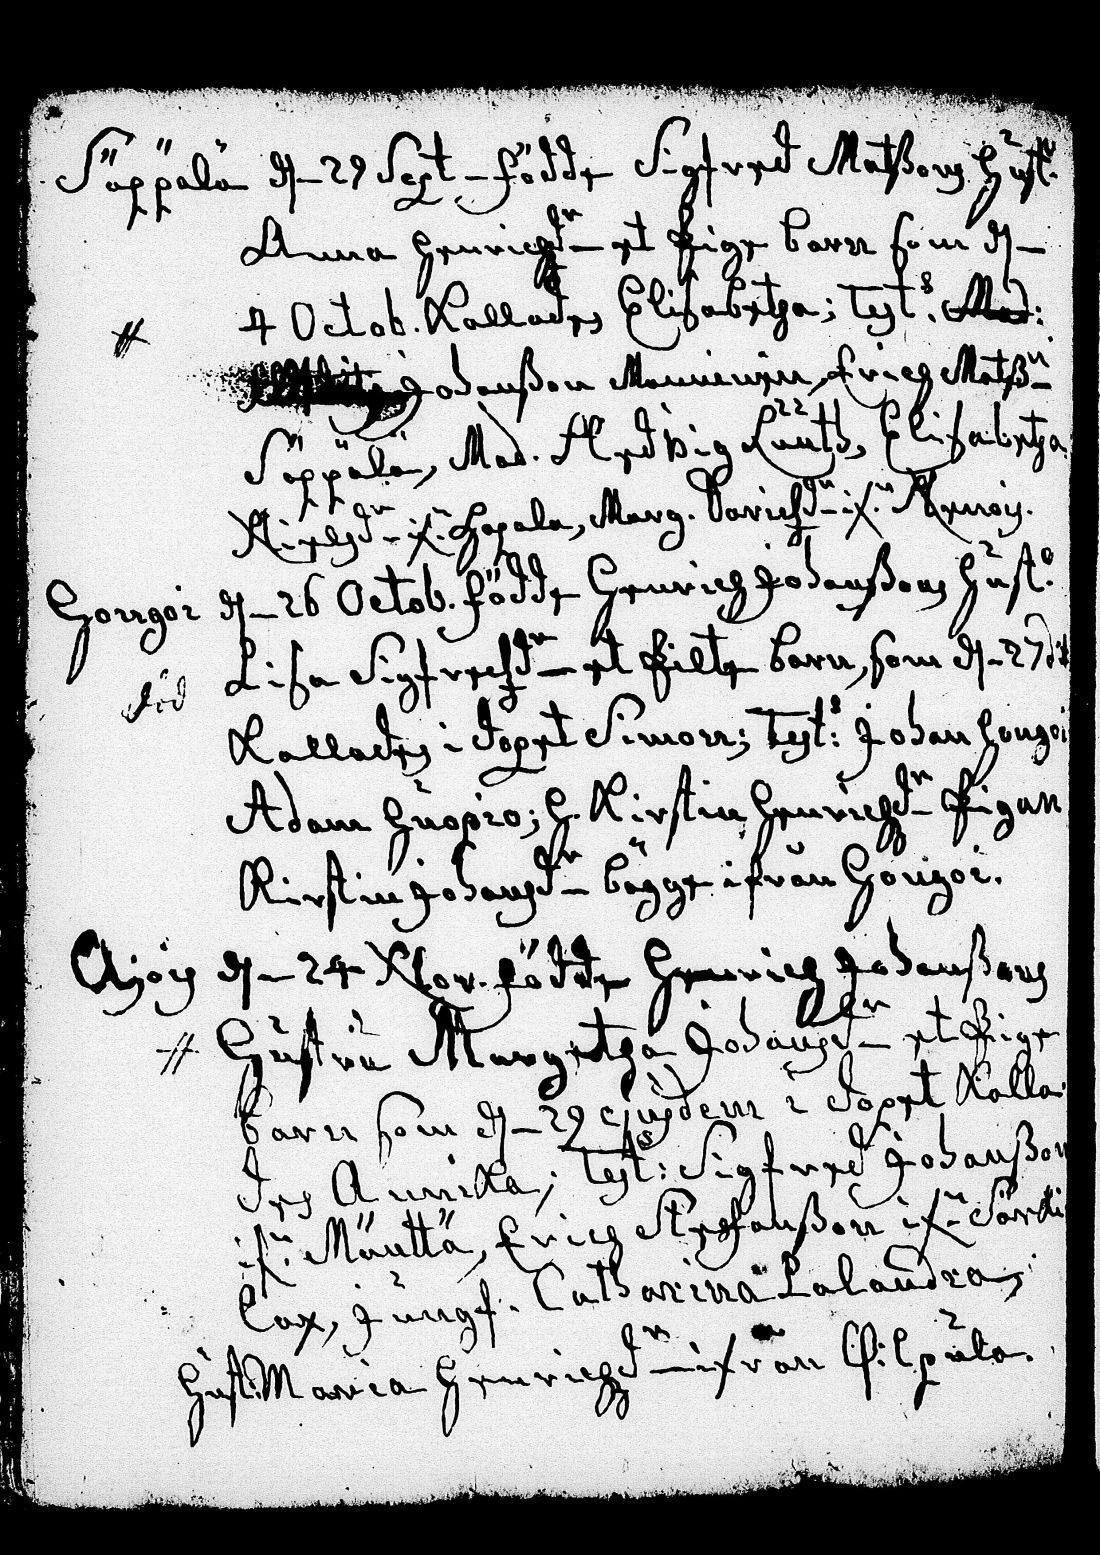 Säppälä d. 29 Sept. födde Sigfred Matßons Hust.
Anna Henrichsdr et Pige barn som d.
4 Octob. Kallades Elisabetha; Test:
Johanßon Monninen, Erich Matßn
Säppälä, Mad. Hedvig Lauth, Elisabetha
dr if:n Hapala, Marg. dr if:n
Hongoi d. 26 Octob. födde Henrich Johanßons Hust:
Lisa Sigfredsdr et Pilte barn, som d. 27 dit
Kallades i dopet Simon; Test: Johan Hongoi
Adam Huopio; H. Kirstin Henrichsdr Pigan
Kirstin Johansdr bägge ifrån Hongoi.
Ajois d. 24 Nov. födde Henrich Johanßons
# Hustru Margetha Johansdr et Pige
barn som d. 29 ejusdem i dopet Kalla
des Annika; Test: Sigfred Johanßon
if:n Mänttä, Erich Stephanßon if:n Särki
lax, Jungf. Catharina Lalandra,
Hust: Maria Henrichsdr ifrån Pilpala.
#
död